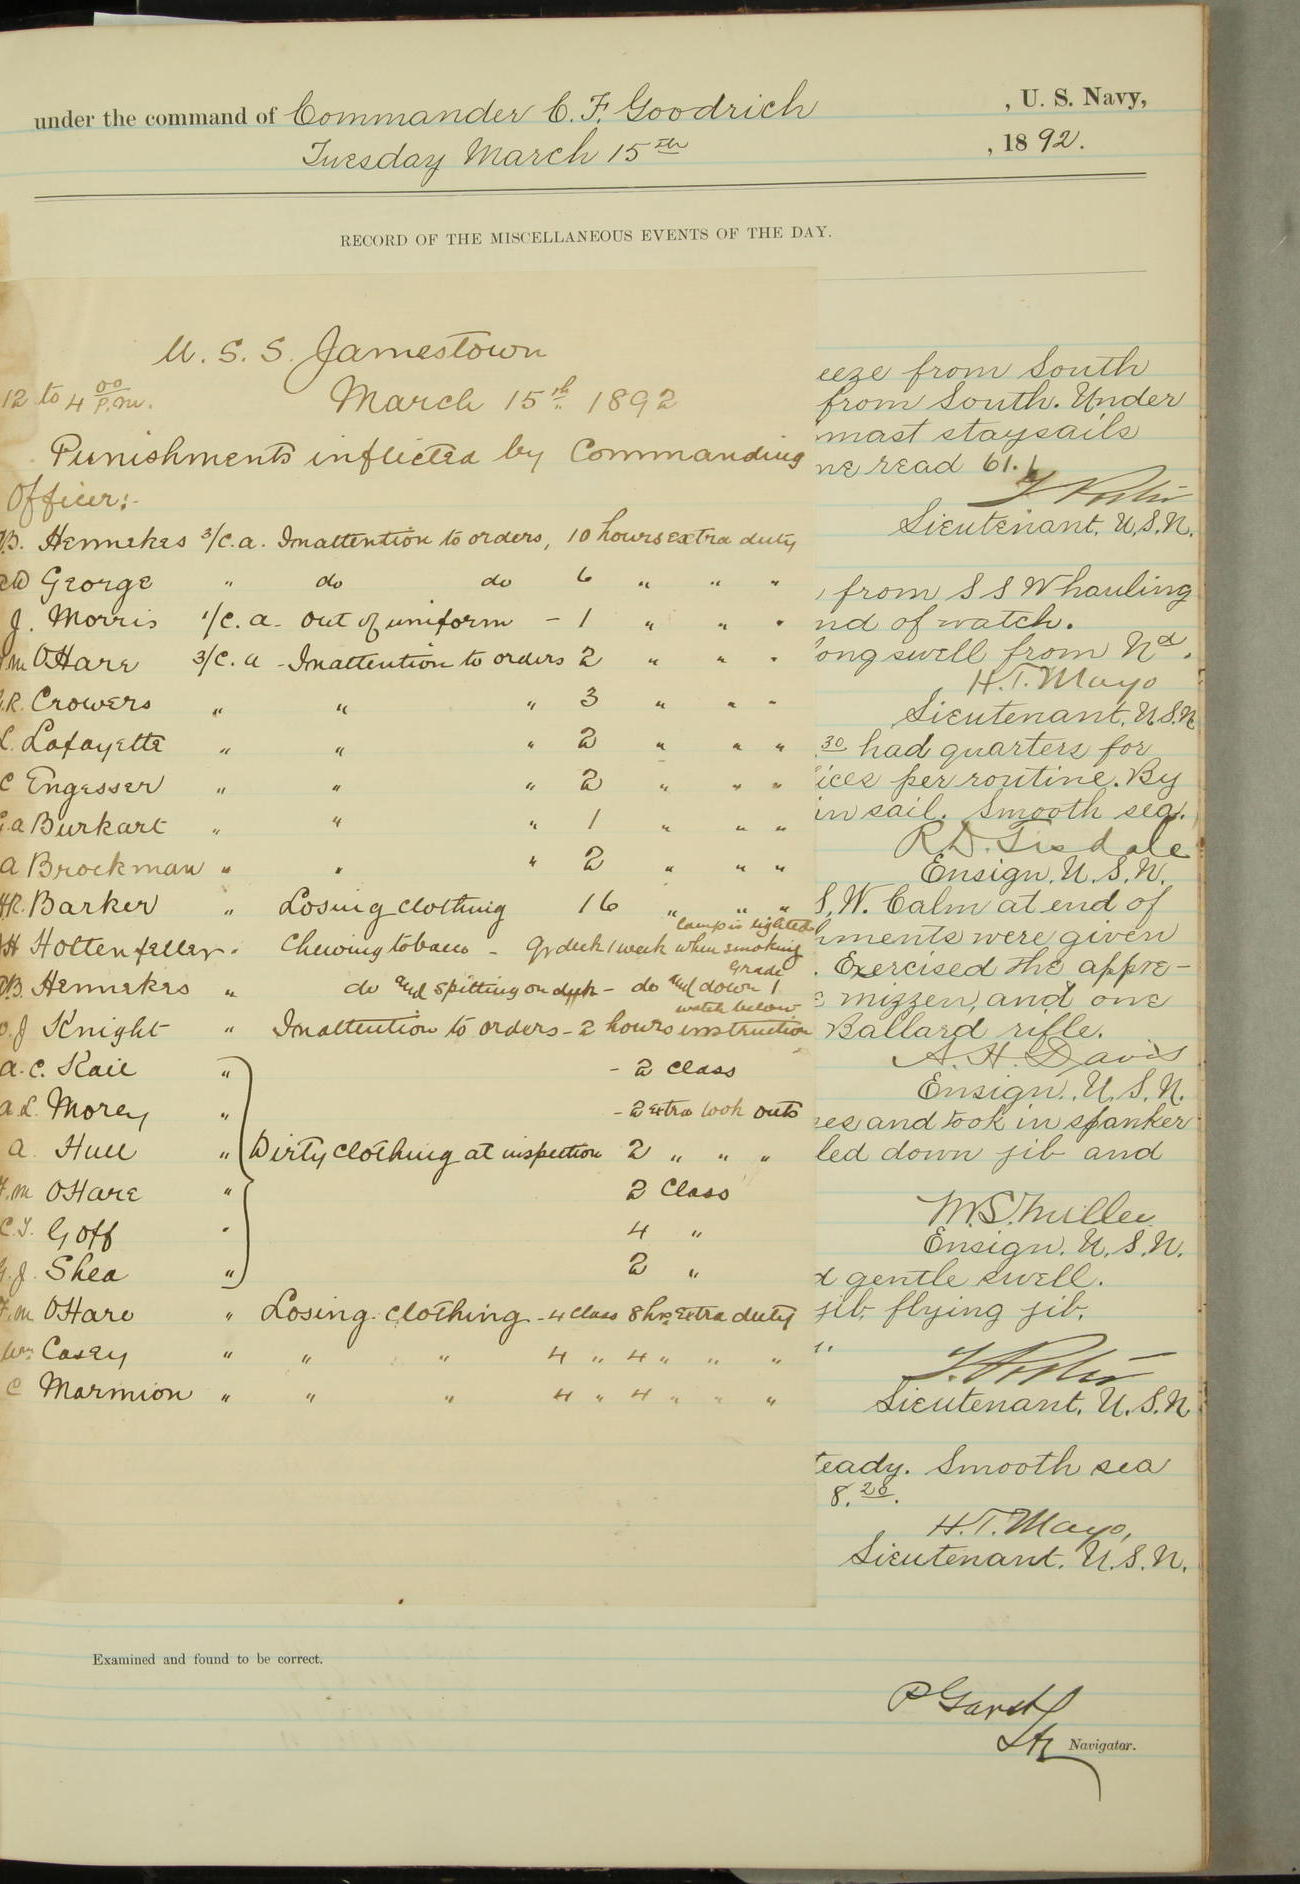 under the command of Commander C. F. Goodrich , U. S. Navy,
Tuesday March 15th , 1892.
RECORD OF THE MISCELLANEOUS EVENTS OF THE DAY.
U. S. S. Jamestown
12 to 4 00 P.M. March 15th 1892
Punishments inflicted by Commanding
Officer:-
B. Hennekes 3/c. a. Inattention to orders, 10 hours extra duty
George " do do 6 " " "
J. Morris 1/c. a - Out of uniform - 1 " " "
M OHare 3/c. a - Inattention to orders 2 " " "
R. Crowers " " " 3 " " "
L. Lafayette " " " 2 " " "
C Engesser " " " 2 " " "
a Burkart " " " 1 " " "
a Brockman " " " 2 " " "
HR. Barker " Losing clothing 16 " " "
H Holtenfeller " Chewing tobacco - Qr deck 1 week when smoking lamp is lighted
B. Hennekes " do and spitting on deck - do and down 1 grade
J Knight " Inattention to orders - 2 hours instruction watch below
a. C. Kail " - 2 class
a L. Morey " - 2 extra look outs
a. Hull " Dirty clothing at inspection 2 " " "
F. M OHare " 2 Class
C. T. Goff " 4 "
J. Shea " 2 "
F. M OHare " Losing clothing - 4 class 8 hrs extra duty
Wm Casey " " " 4 " 4 " " "
C Marmion " " " 4 " 4 " " "
eeze from South
from South. Under
mast staysails
ne read 61.1
Lieutenant, U.S.N.
from S S W hauling
nd of watch.
ong swell from Nd.
H. T. Mayo
Lieutenant, U.S.N.
30 had quarters for
ices per routine. By
in sail. Smooth sea.
R. D. Tisdale
Ensign. U. S. N.
S. W. Calm at end of
ments were given
. Exercised the appre-
e mizzen, and one
Ballard rifle.
A. H. Davis
Ensign. U. S. N.
es and took in spanker
led down jib and
Ensign. U. S. N.
d gentle swell.
jib, flying jib.
Lieutenant. U.S.N.
teady. Smooth sea
8.20.
H. T. Mayo,
Lieutenant. U. S. N.
Examined and found to be correct.
P Garst
Lt. Navigator.